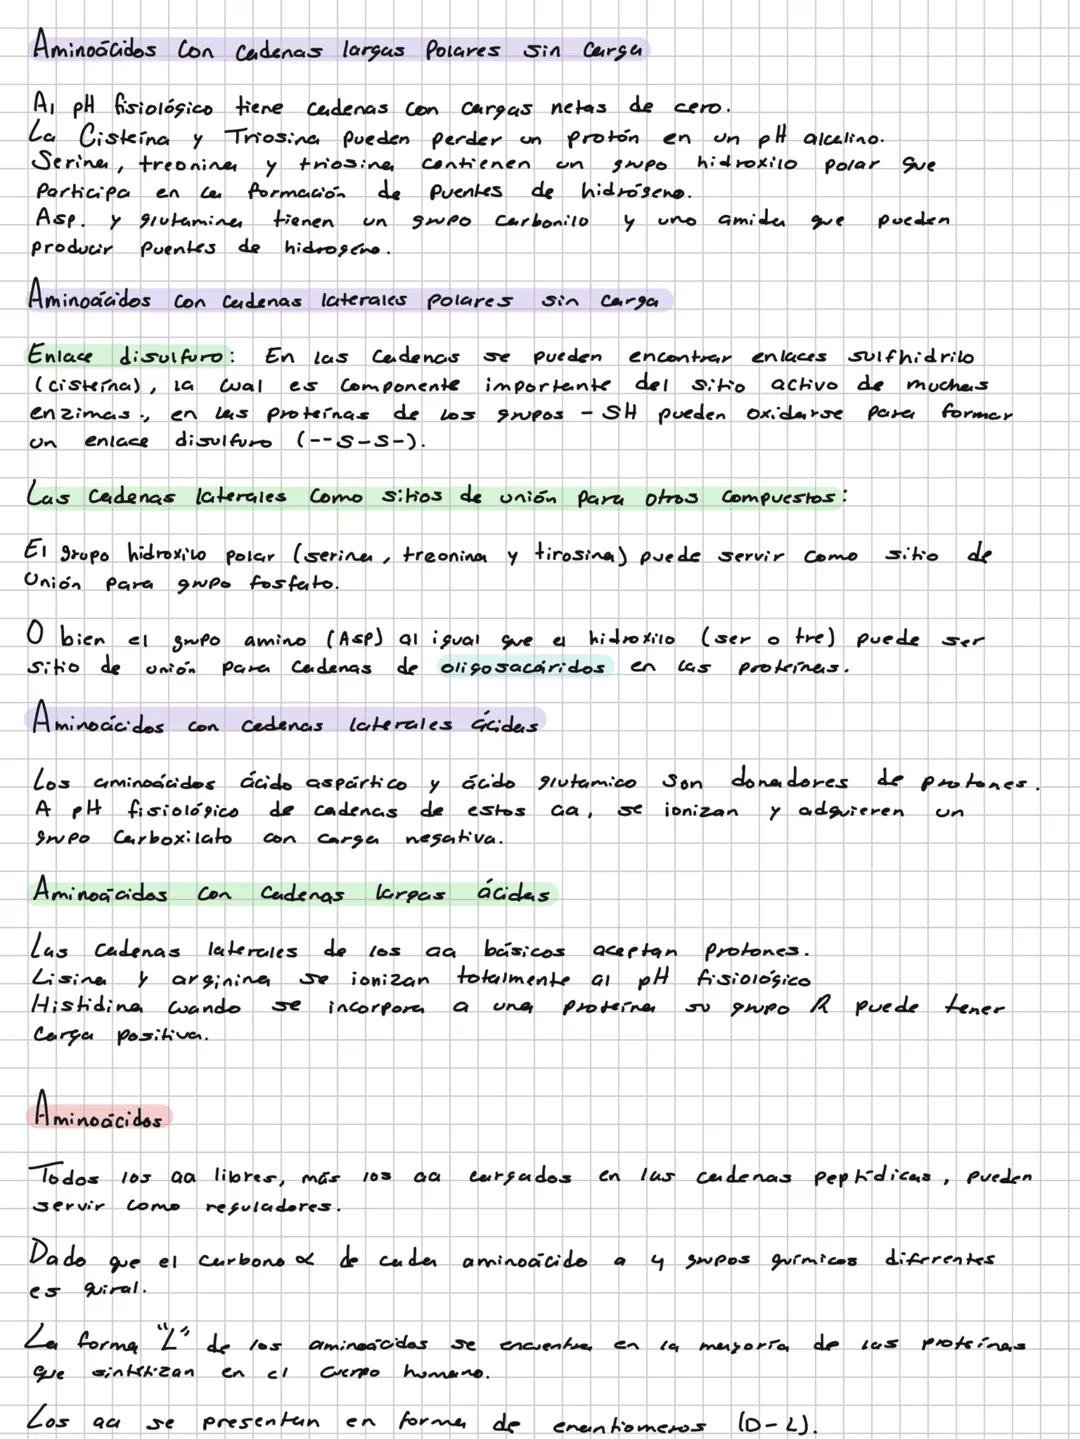 Aminoácidos con cadenas largas polares sin carga
Al pH fisiológico tiene cadenas con cargas netas de cero.
La Cisteína y Triosina pueden perder un protón en un pH alcalino.
Serina, treonina y triosina contienen un grupo hidroxilo polar que
participa en la formación de puentes de hidrógeno.
Asp. y glutamina tienen un grupo carbonilo y uno amida que pueden
producir puentes de hidrogeno.
Aminoácidos con cadenas laterales polares sin carga
Enlace disulfuro: En las cadenas se pueden encontrar enlaces sulfhidrilo
(cisteína), la cual es componente importante del sitio activo de muchas
enzimas., en las proteínas de los grupos -SH pueden oxidarse para formar
un enlace disulfuro (--S-S-).
Las cadenas laterales como sitios de unión para otros compuestos:
El grupo hidroxilo polar (serina, treonina y tirosina) puede servir como sitio de
unión para grupo fosfato.
O bien el grupo amino (Asp) al igual que el hidroxilo (ser o tre) puede ser
sitio de unión para cadenas de oligosacáridos en las proteínas.
Aminoácidos con cadenas laterales ácidas
Los aminoácidos ácido aspártico y ácido glutamico son donadores de protones.
A pH fisiológico de cadenas de estos aa, se ionizan y adquieren un
grupo carboxilato con carga negativa.
Aminoácidos con cadenas largas ácidas
Las cadenas laterales de los aa básicos aceptan protones.
Lisina y arginina se ionizan totalmente al pH fisiológico
Histidina cuando se incorpora a una proteína su grupo R puede tener
carga positiva.
Aminoácidos
Todos los aa libres, más los aa cargados en las cadenas peptídicas, pueden
servir como reguladores.
Dado que el carbono α de cada aminoácido a 4 grupos químicos diferentes
es quiral.
La forma "L" de los aminoácidos se encuentra en la mayoría de las proteínas
que sintetizan en el cuerpo humano.
Los aa se presentan en forma de enantiomeros (D-L).